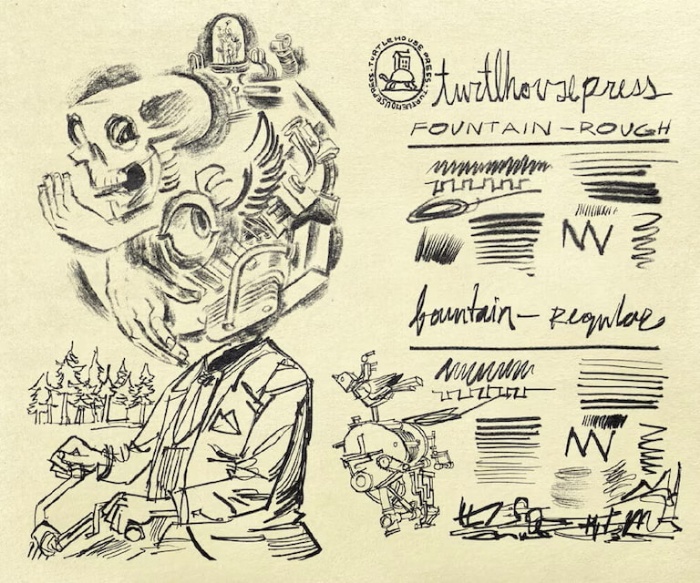 TURTLEHOUSE PRESS · TURTLEHOUSE PRESS ·
turtlhousepress
FOUNTAIN-ROUGH
fountain- regular